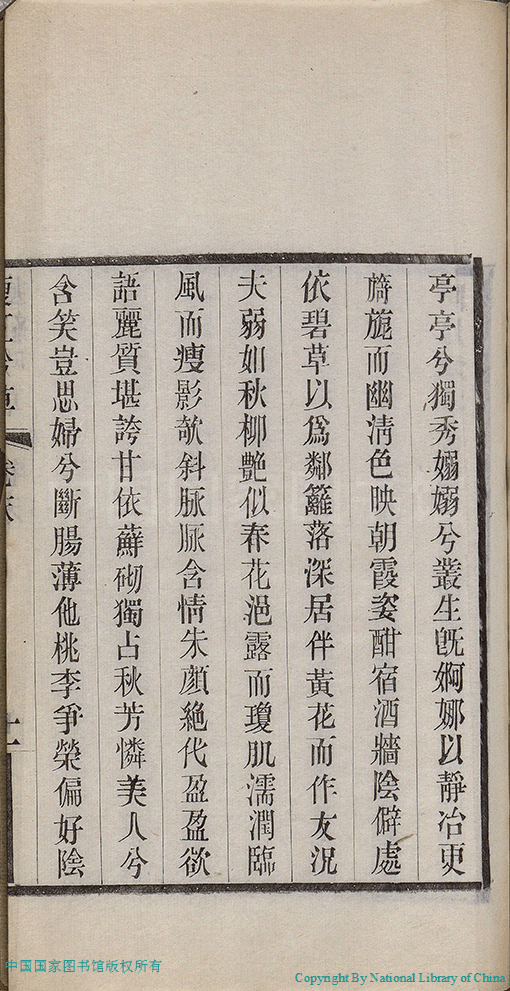 亭亭兮獨秀嫋嫋兮叢生旣婀娜以靜冶更
旖旎而幽淸色映朝霞姿酣宿酒牆陰僻處
依碧草以爲鄰籬落深居伴黃花而作友況
夫弱如秋柳艷似春花浥露而瓊肌濡潤臨
風而瘦影欹斜脉脉含情朱顏絶代盈盈欲
語麗質堪誇甘依蘚砌獨占秋芳憐美人兮
含笑豈思婦兮斷腸薄他桃李爭榮偏好陰
中国国家图书馆版权所有
Copyright By National Library of China